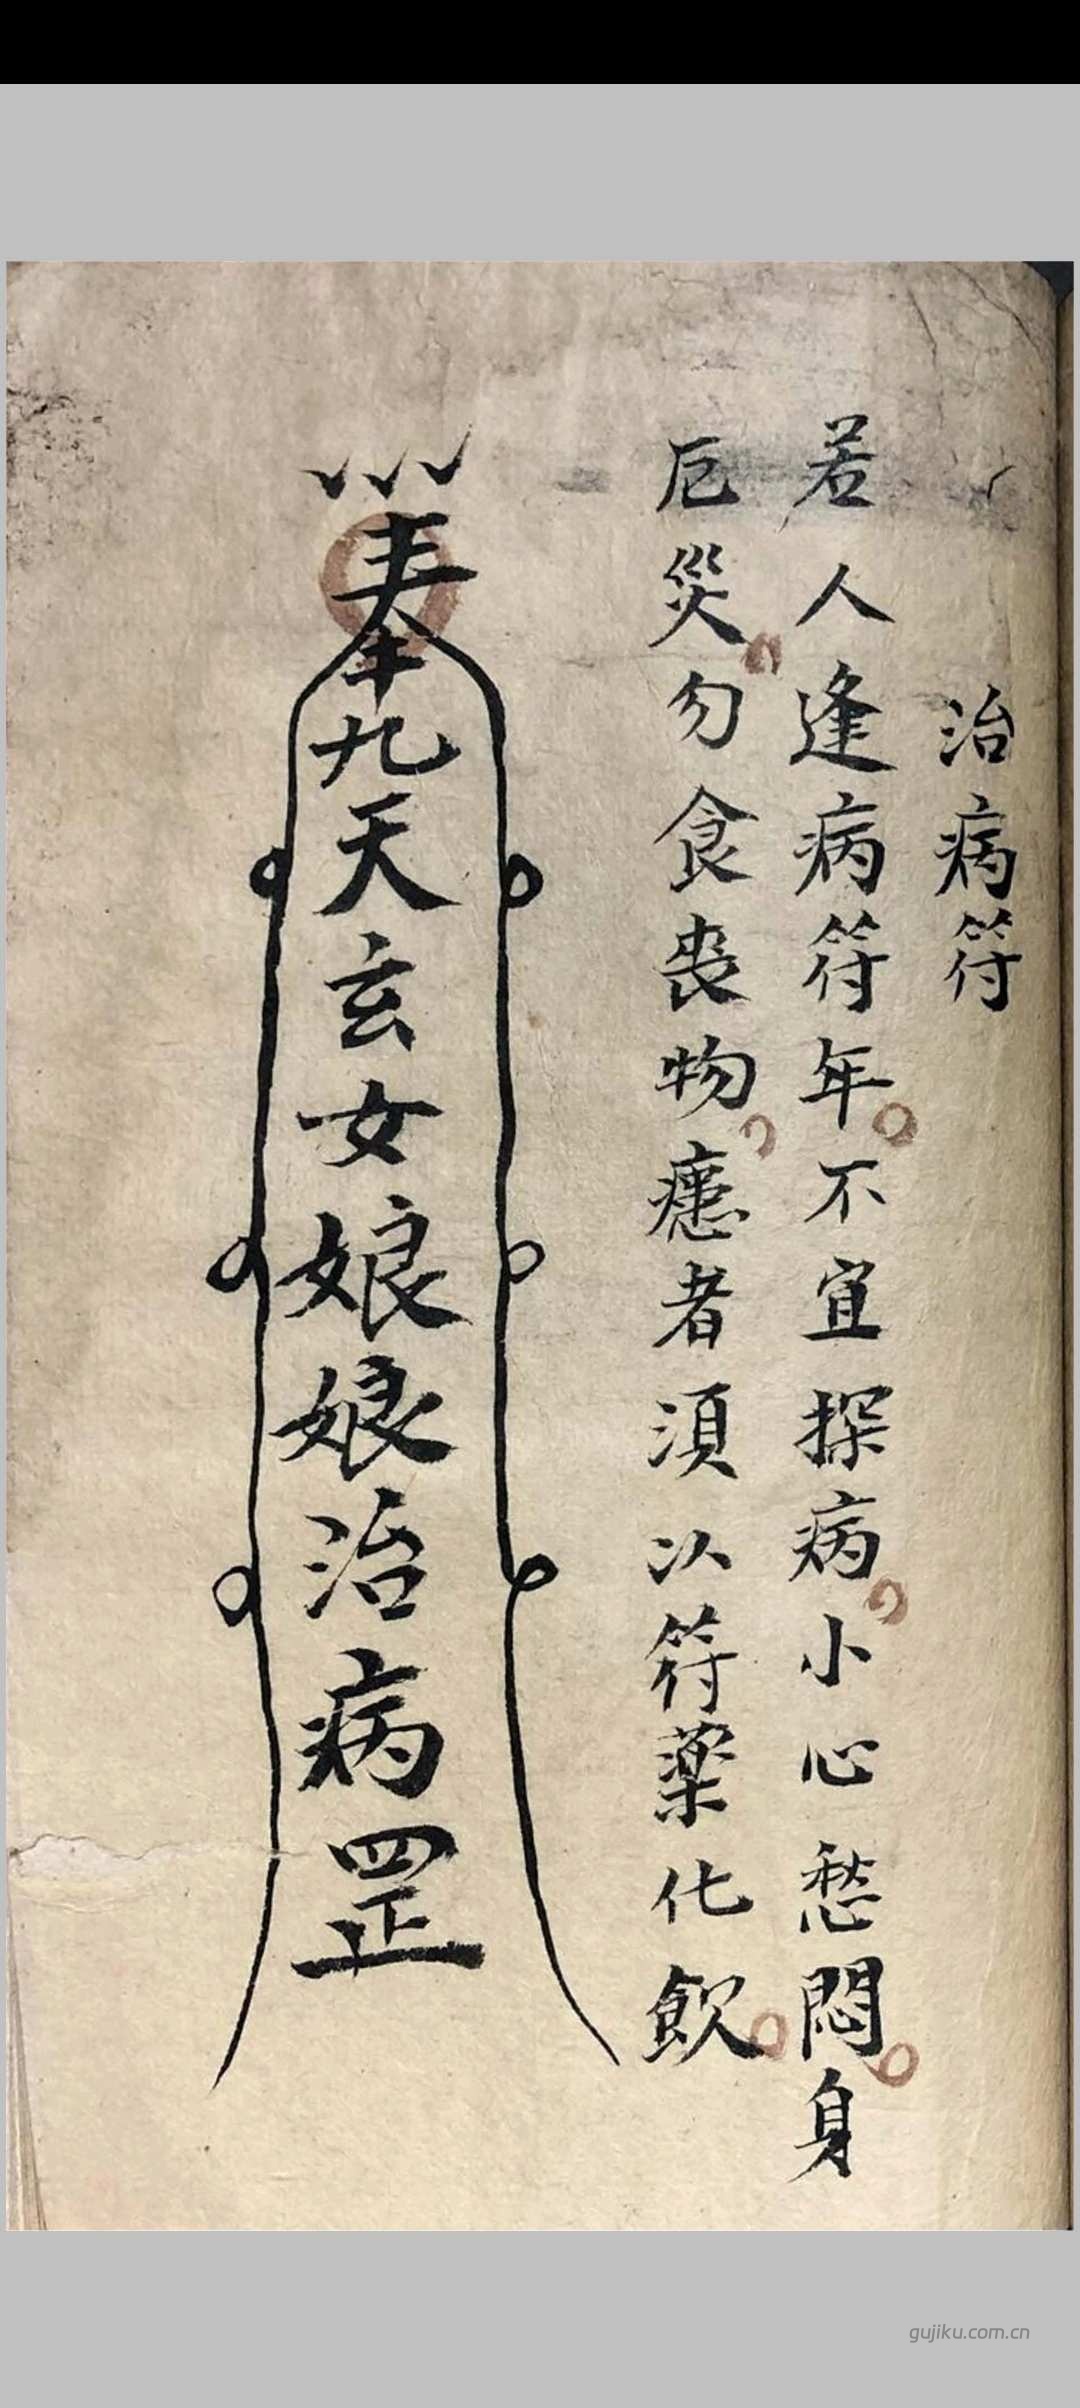 治病符
若人逢病符年不宜探病小心愁悶身
厄災勿食喪物癋者須以符藥化飲
奉九天玄女娘娘治病罡
gujiku.com.cn